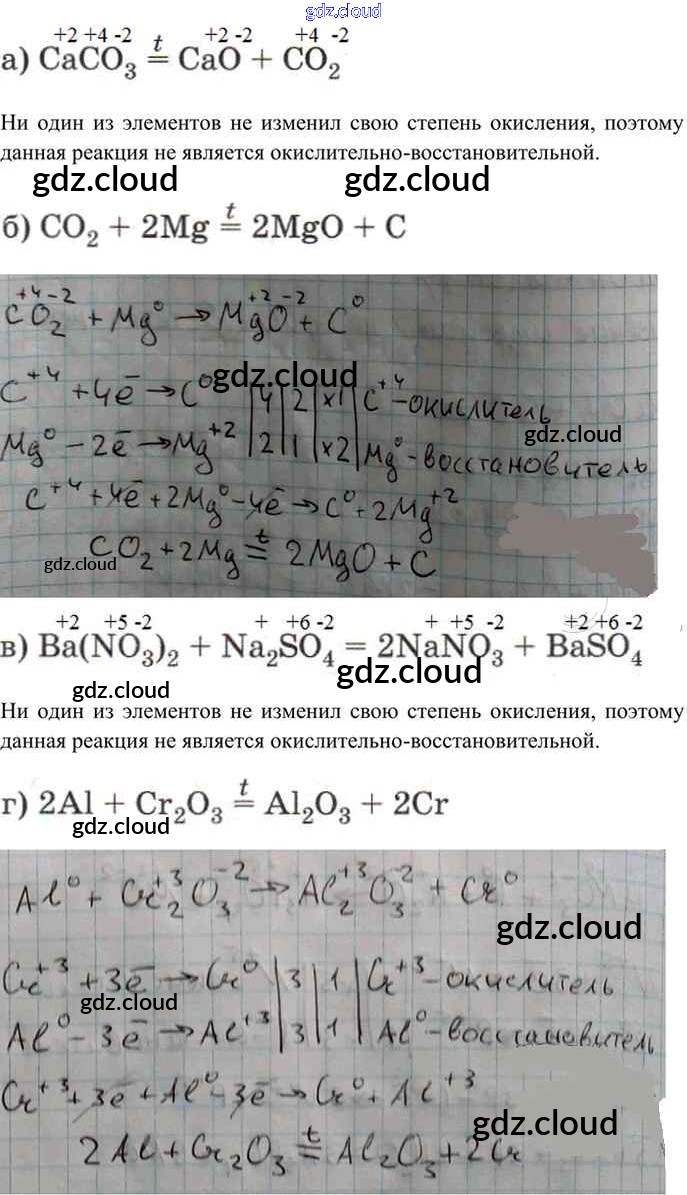 gdz.cloud
+2 +4 -2 +2 -2 +4 -2
а) CaCO₃ =ᵗ CaO + CO₂
Ни один из элементов не изменил свою степень окисления, поэтому
данная реакция не является окислительно-восстановительной.
gdz.cloud gdz.cloud
б) CO₂ + 2Mg =ᵗ 2MgO + C
+4 -2 +2 -2
CO₂ + Mg⁰ → MgO + C⁰
gdz.cloud
C⁺⁴ + 4ē → C⁰ | 4 | 2 | ×1 | C⁺⁴ - окислитель
gdz.cloud
Mg⁰ - 2ē → Mg⁺² | 2 | 1 | ×2 | Mg⁰ - восстановитель
C⁺⁴ + 4ē + 2Mg⁰ - 4ē → C⁰ + 2Mg⁺²
CO₂ + 2Mg =ᵗ 2MgO + C
gdz.cloud
+2 +5 -2 + +6 -2 + +5 -2 +2 +6 -2
в) Ba(NO₃)₂ + Na₂SO₄ = 2NaNO₃ + BaSO₄
gdz.cloud gdz.cloud
Ни один из элементов не изменил свою степень окисления, поэтому
данная реакция не является окислительно-восстановительной.
г) 2Al + Cr₂O₃ =ᵗ Al₂O₃ + 2Cr
gdz.cloud
Al⁰ + Cr₂⁺³O₃⁻² → Al₂⁺³O₃⁻² + Cr⁰
gdz.cloud
Cr⁺³ + 3ē → Cr⁰ | 3 | 1 | Cr⁺³ - окислитель
gdz.cloud
Al⁰ - 3ē → Al⁺³ | 3 | 1 | Al⁰ - восстановитель
Cr⁺³ + 3ē + Al⁰ - 3ē → Cr⁰ + Al⁺³
gdz.cloud
2Al + Cr₂O₃ =ᵗ Al₂O₃ + 2Cr